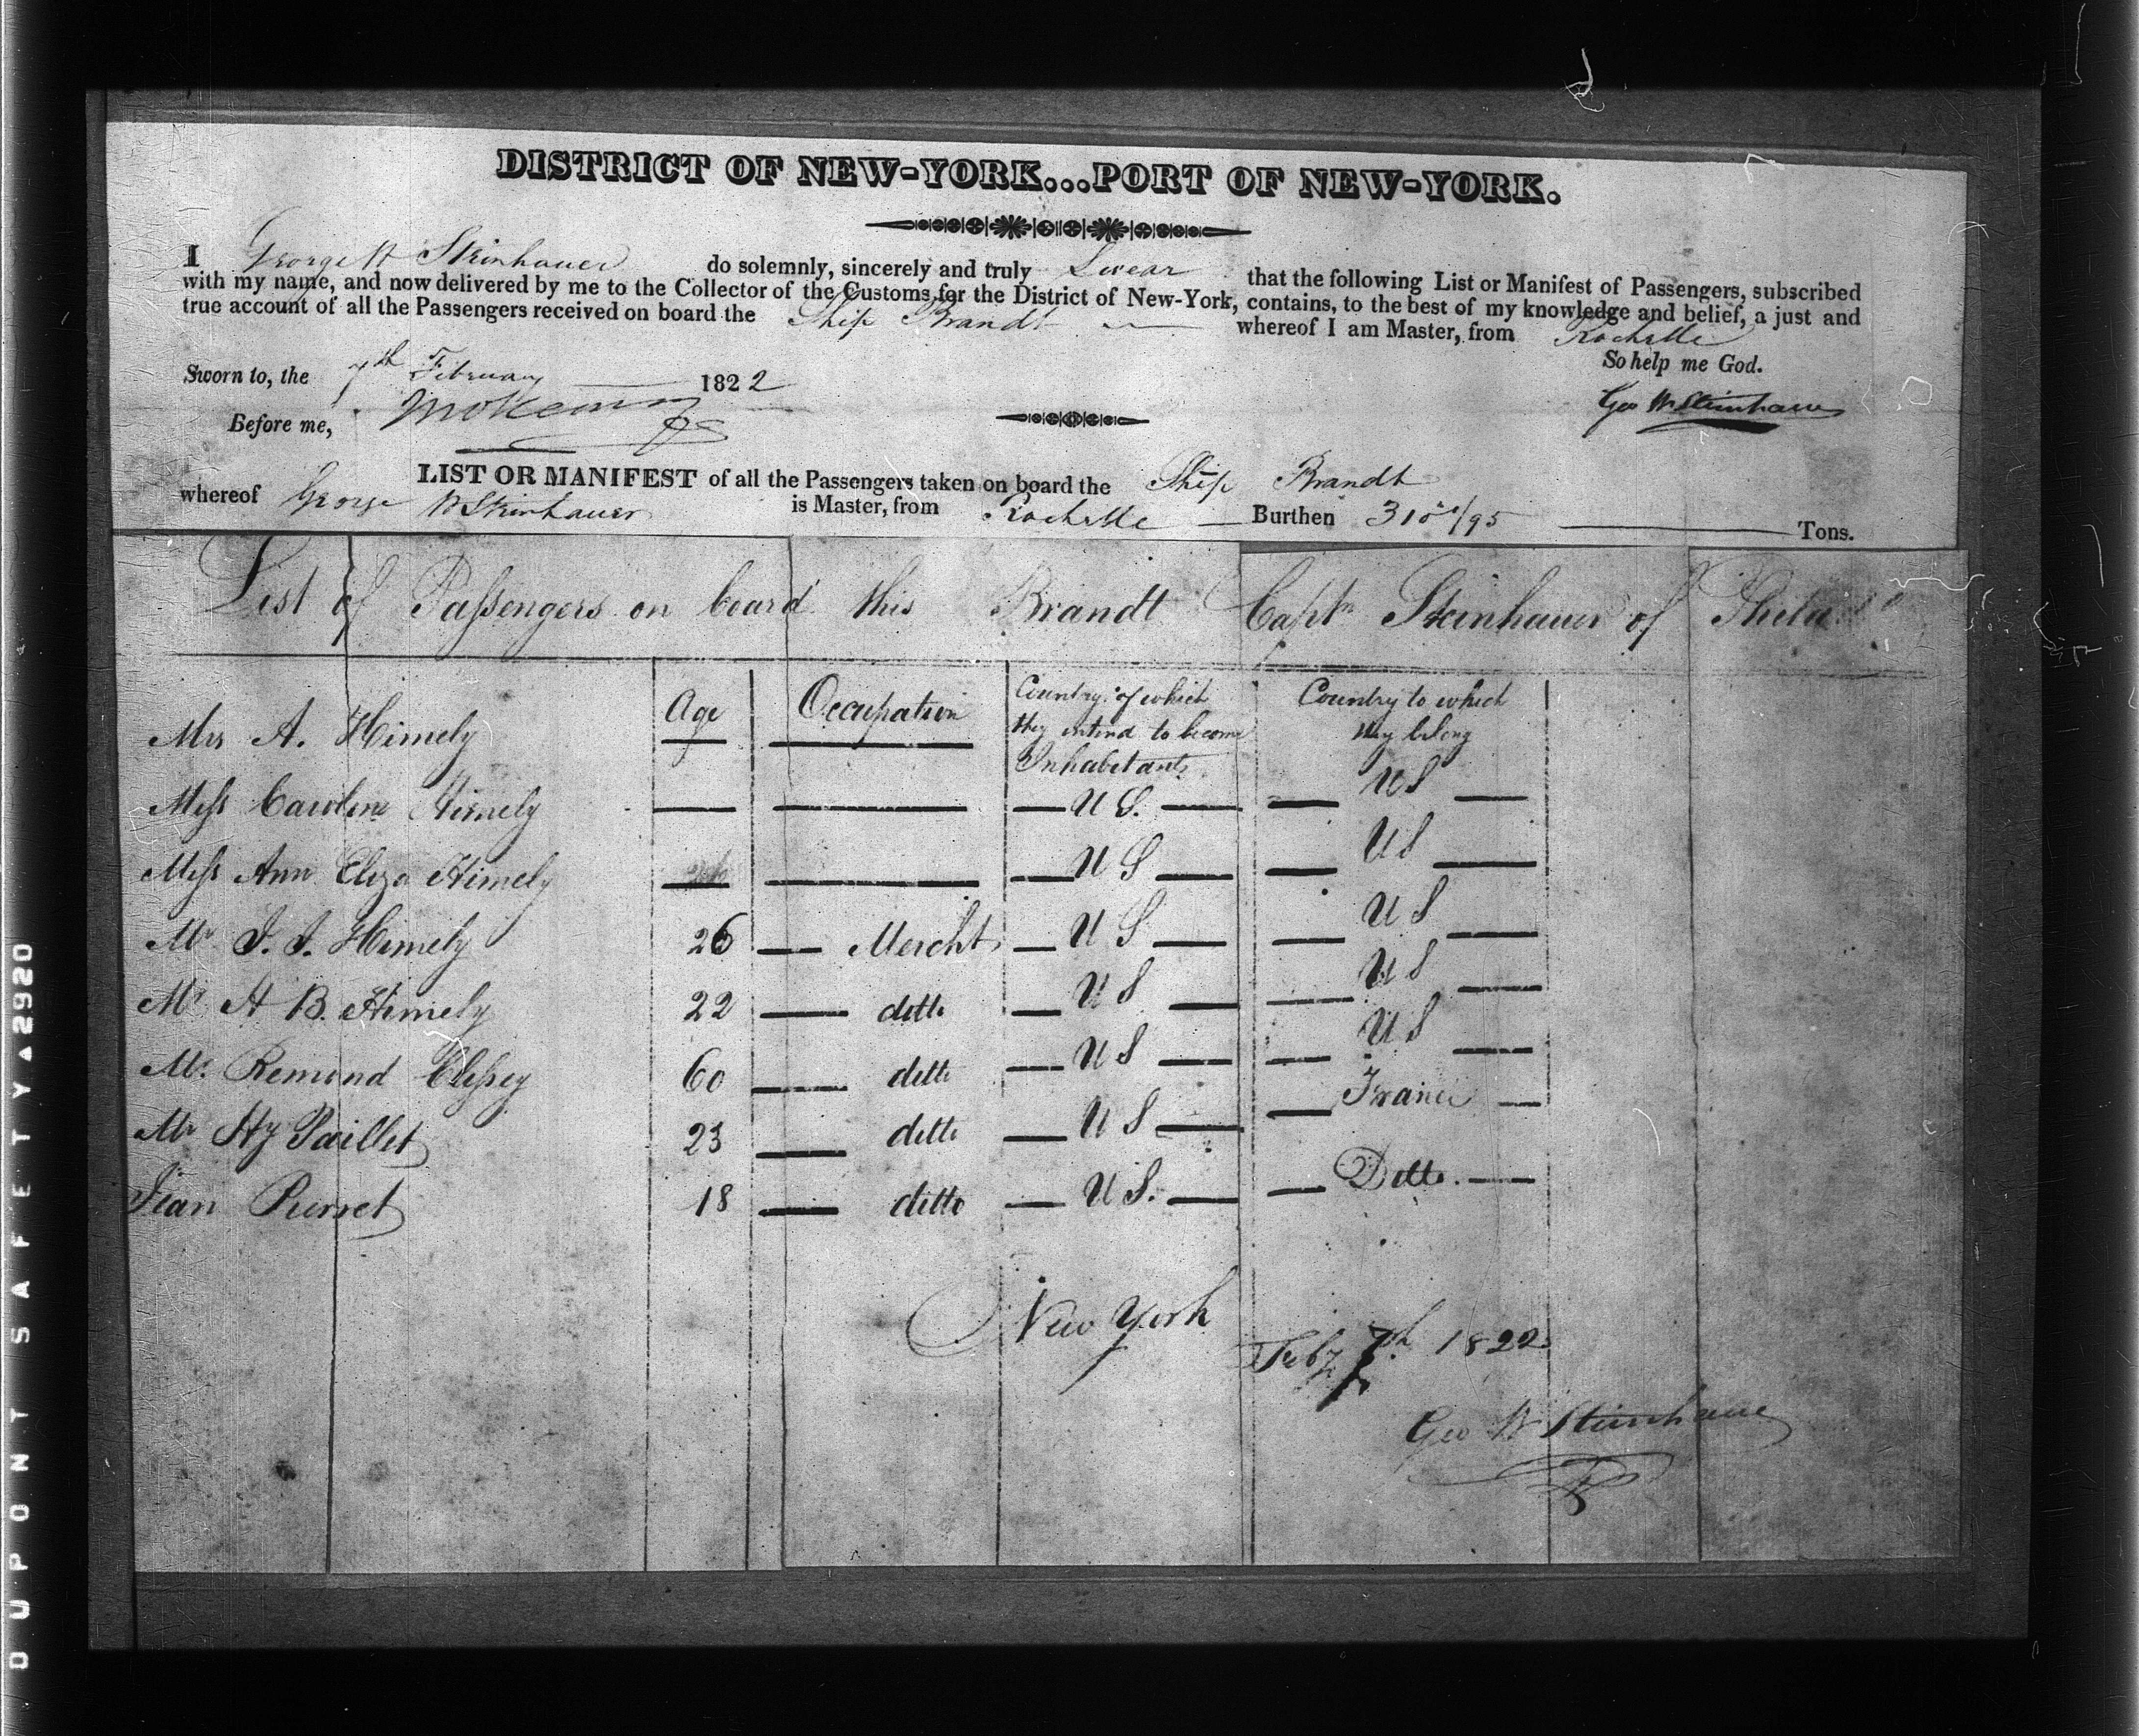 DISTRICT OF NEW-YORK...PORT OF NEW-YORK.
I George W Steinhauer do solemnly, sincerely and truly Swear that the following List or Manifest of Passengers, subscribed
with my name, and now delivered by me to the Collector of the Customs for the District of New-York, contains, to the best of my knowledge and belief, a just and
true account of all the Passengers received on board the Ship Brandt whereof I am Master, from Rochelle
So help me God.
Sworn to, the 7th February 1822
Geo W Steinhauer
Before me,
LIST OR MANIFEST of all the Passengers taken on board the Ship Brandt
whereof George W Steinhauer is Master, from Rochelle Burthen /95 Tons.
List of Passengers on board this Brandt Captn Steinhauer of
Age Occupation Country of which they intend to become Inhabitants Country to which they belong
Mrs A. Himely U S. U S
Miss Caroline Himely U S U S
Miss Ann Eliza Himely U S U S
Mr J. J. Himely 26 Mercht U S U S
Mr H B. Himely 22 ditto U S U S
Mr. Remond 60 ditto U S France
Mr Hy Paillet 23 ditto U S. Ditto.
Jean Perret 18 ditto
New York Feby 7th 1822
Geo W Steinhauer
DUPONT SAFETY▲2920